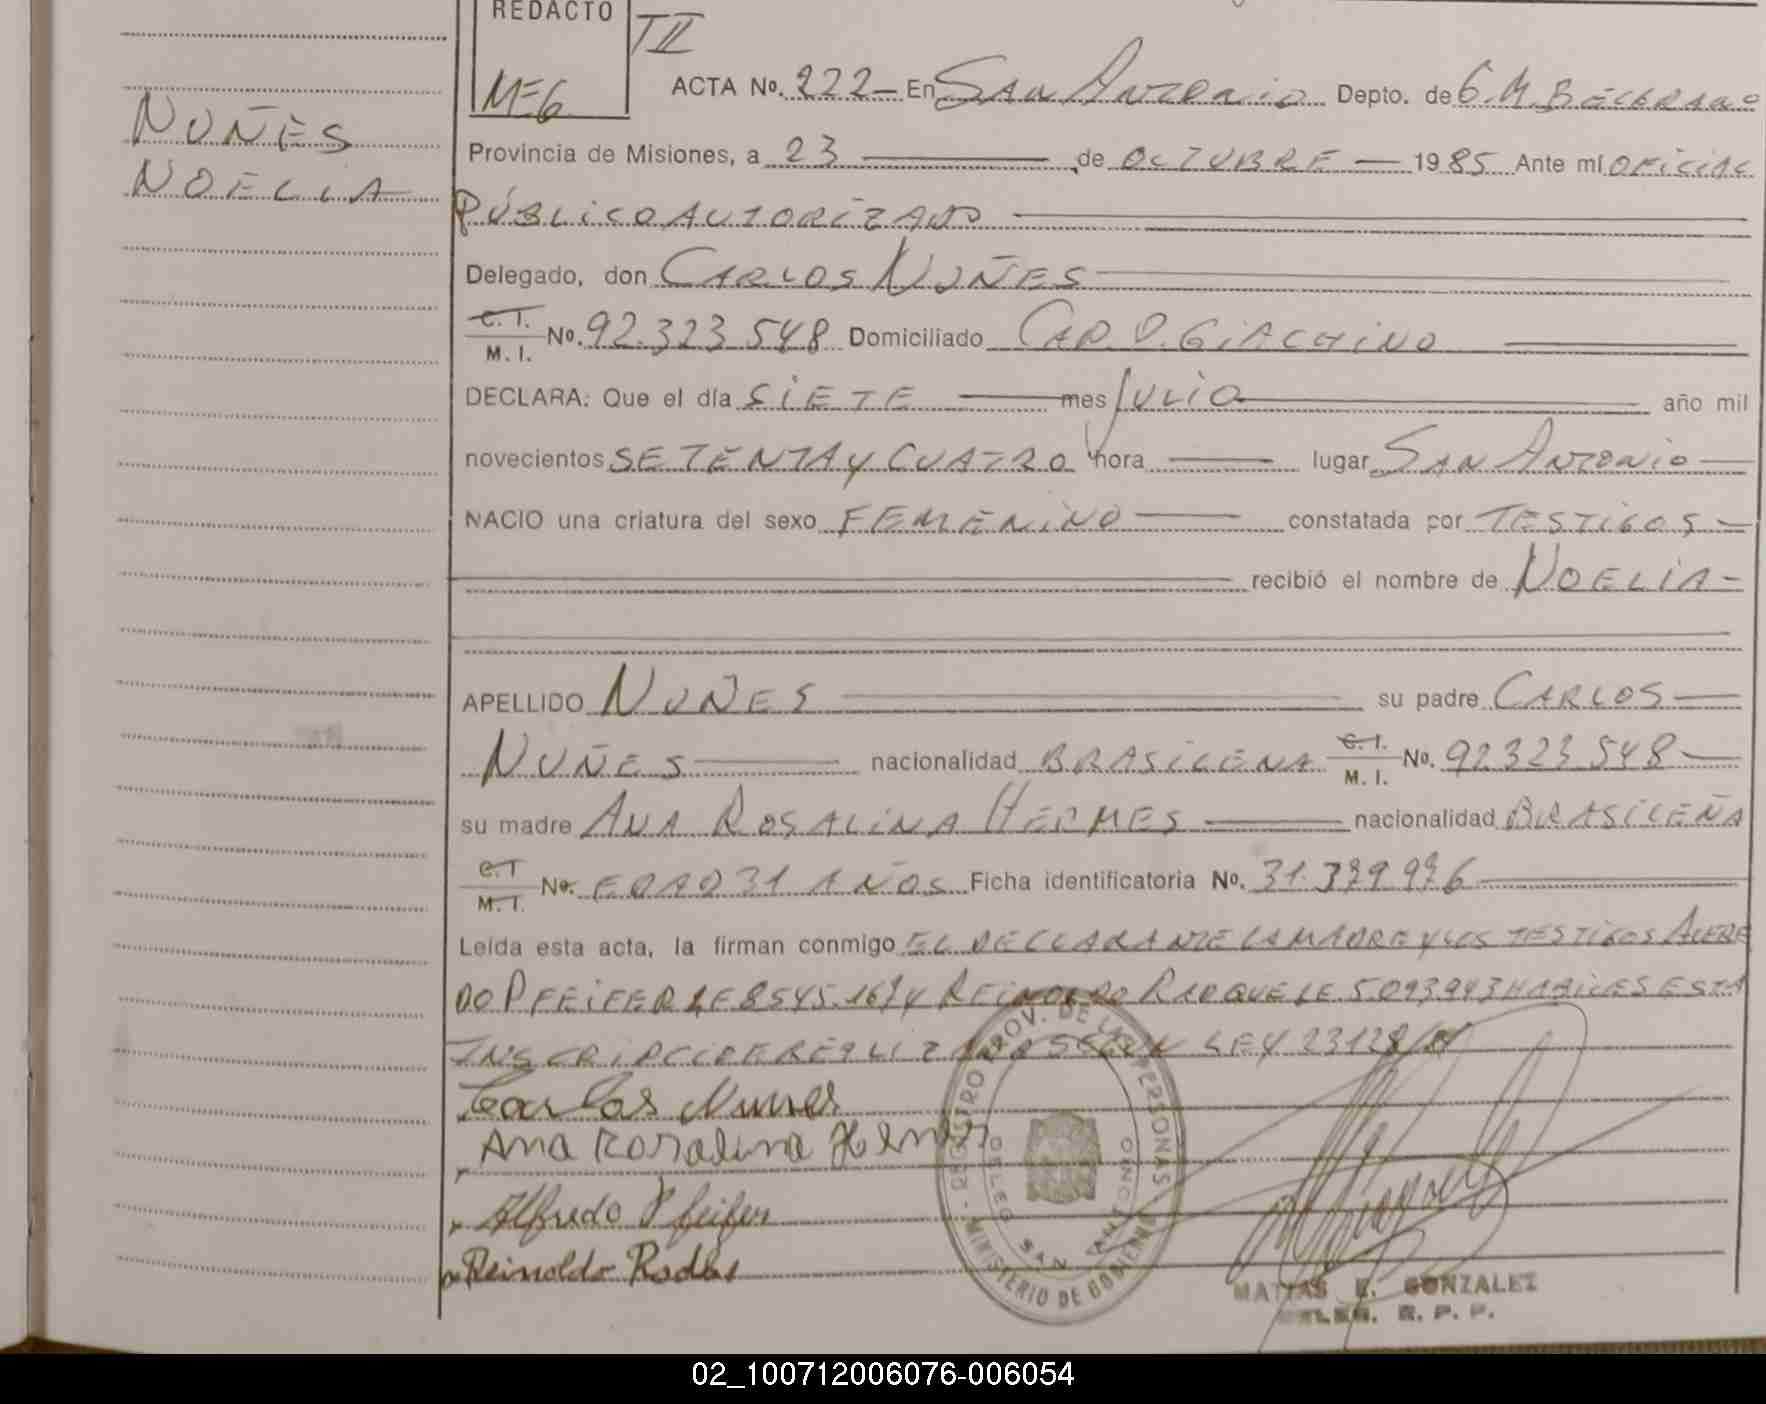 REDACTO
TII
MEG
ACTA No. 222 - En SAN ANTONIO Depto. de G. M. BELGRANO
NUÑES
NOELIA
Provincia de Misiones, a 23 de OCTUBRE 1985 Ante mí OFICIAL
PÚBLICO AUTORIZADO
Delegado, don CARLOS NUÑES
C. I. / M. I. No. 92.323.548 Domiciliado CAP. P. GIACHINO
DECLARA: Que el día SIETE mes JULIO año mil
novecientos SETENTA Y CUATRO hora lugar SAN ANTONIO
NACIO una criatura del sexo FEMENINO constatada por TESTIGOS
recibió el nombre de NOELIA
APELLIDO NUÑES su padre CARLOS
NUÑES nacionalidad BRASILENA C. I. / M. I. No. 92323548
su madre ANA ROSALINA HERMES nacionalidad BRASILEÑA
C. I / M. I. No. EDAD 31 AÑOS Ficha identificatoria No.
Leída esta acta, la firman conmigo EL DECLARANTE LA MADRE Y LOS TESTIGOS ALFRE
DO PFEIFER LE 8545.167 Y REINOLDO LE 5.093.943 HABILES ESTA
SEGUN LEY 23128
Carlos Nunes
Ana Rosalina Hermes
Alfredo Pfeifer
Reinoldo Rodas
REGISTRO PROV. DE LAS PERSONAS
MINISTERIO DE GOBIERNO
SAN ANTONIO
MATIAS E. GONZALEZ
R. P. P.
02_100712006076-006054